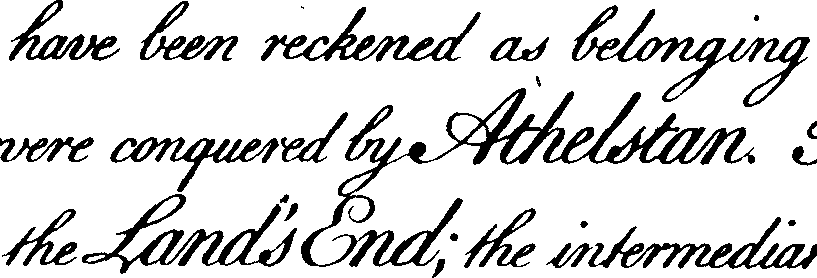 have been reckened as belonging
were conquered by Athelstan.
the Land's End; the